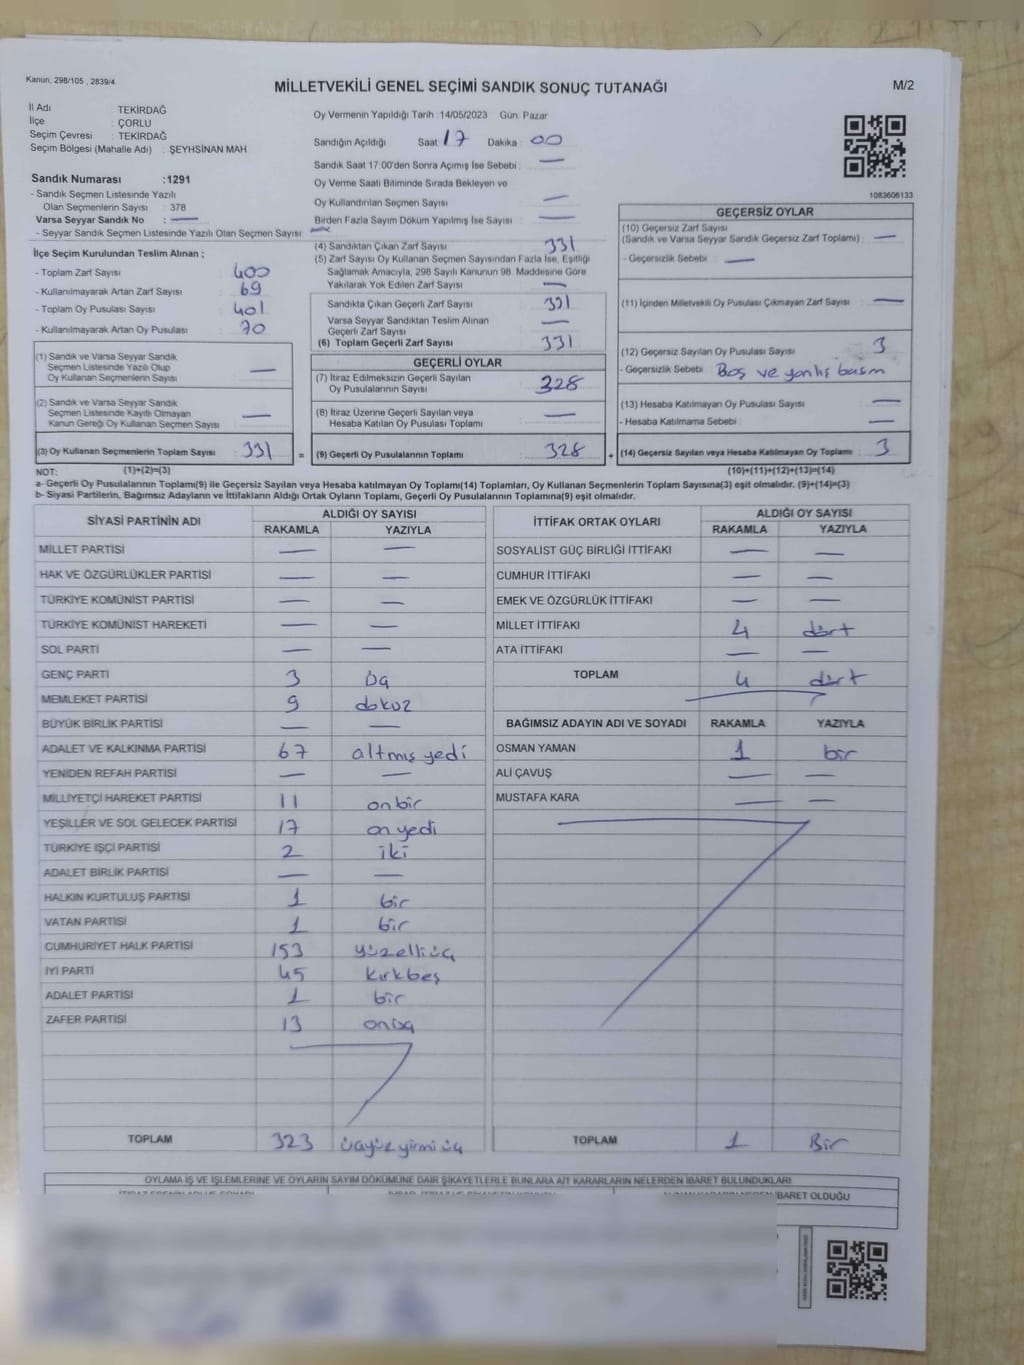 Kanun, 298/105 , 2839/4
MİLLETVEKİLİ GENEL SEÇİMİ SANDIK SONUÇ TUTANAĞI
M/2
İl Adı TEKİRDAĞ
İlçe : ÇORLU
Seçim Çevresi : TEKİRDAĞ
Seçim Bölgesi (Mahalle Adı) : ŞEYHSİNAN MAH
Sandık Numarası :1291
- Sandık Seçmen Listesinde Yazılı
Olan Seçmenlerin Sayısı : 378
Varsa Seyyar Sandık No : —
- Seyyar Sandık Seçmen Listesinde Yazılı Olan Seçmen Sayısı: —
İlçe Seçim Kurulundan Teslim Alınan ;
- Toplam Zarf Sayısı 400
- Kullanılmayarak Artan Zarf Sayısı 69
- Toplam Oy Pusulası Sayısı 401
- Kullanılmayarak Artan Oy Pusulası 70
(1) Sandık ve Varsa Seyyar Sandık
Seçmen Listesinde Yazılı Olup
Oy Kullanan Seçmenlerin Sayısı —
(2) Sandık ve Varsa Seyyar Sandık
Seçmen Listesinde Kayıtlı Olmayan
Kanun Gereği Oy Kullanan Seçmen Sayısı —
(3) Oy Kullanan Seçmenlerin Toplam Sayısı 331 =
Oy Vermenin Yapıldığı Tarih :14/05/2023 Gün: Pazar
Sandığın Açıldığı Saat 17 Dakika : 00
Sandık Saat 17:00'den Sonra Açımış İse Sebebi : —
Oy Verme Saati Bitiminde Sırada Bekleyen ve
Oy Kullandırılan Seçmen Sayısı —
Birden Fazla Sayım Döküm Yapılmış İse Sayısı —
(4) Sandıktan Çıkan Zarf Sayısı 331
(5) Zarf Sayısı Oy Kullanan Seçmen Sayısından Fazla İse, Eşitliği
Sağlamak Amacıyla, 298 Sayılı Kanunun 98. Maddesine Göre
Yakılarak Yok Edilen Zarf Sayısı —
Sandıkta Çıkan Geçerli Zarf Sayısı 331
Varsa Seyyar Sandıktan Teslim Alınan
Geçerli Zarf Sayısı —
(6) Toplam Geçerli Zarf Sayısı 331
GEÇERLİ OYLAR
(7) İtiraz Edilmeksizin Geçerli Sayılan
Oy Pusulalarının Sayısı 328
(8) İtiraz Üzerine Geçerli Sayılan veya
Hesaba Katılan Oy Pusulası Toplamı —
(9) Geçerli Oy Pusulalarının Toplamı 328 +
1083606133
GEÇERSİZ OYLAR
(10) Geçersiz Zarf Sayısı
(Sandık ve Varsa Seyyar Sandık Geçersiz Zarf Toplamı) —
- Geçersizlik Sebebi : —
(11) İçinden Milletvekili Oy Pusulası Çıkmayan Zarf Sayısı —
(12) Geçersiz Sayılan Oy Pusulası Sayısı 3
- Geçersizlik Sebebi Boş ve yanlış basım
(13) Hesaba Katılmayan Oy Pusulası Sayısı —
- Hesaba Katılmama Sebebi : —
(14) Geçersiz Sayılan veya Hesaba Katılmayan Oy Toplamı 3
NOT: (1)+(2)=(3) (10)+(11)+(12)+(13)=(14)
a- Geçerli Oy Pusulalarının Toplamı(9) ile Geçersiz Sayılan veya Hesaba katılmayan Oy Toplamı(14) Toplamları, Oy Kullanan Seçmenlerin Toplam Sayısına(3) eşit olmalıdır. (9)+(14)=(3)
b- Siyasi Partilerin, Bağımsız Adayların ve İttifakların Aldığı Ortak Oyların Toplamı, Geçerli Oy Pusulalarının Toplamına(9) eşit olmalıdır.
SİYASİ PARTİNİN ADI ALDIĞI OY SAYISI
RAKAMLA YAZIYLA
MİLLET PARTİSİ — —
HAK VE ÖZGÜRLÜKLER PARTİSİ — —
TÜRKİYE KOMÜNİST PARTİSİ — —
TÜRKİYE KOMÜNİST HAREKETİ — —
SOL PARTİ — —
GENÇ PARTİ 3 üç
MEMLEKET PARTİSİ 9 dokuz
BÜYÜK BİRLİK PARTİSİ — —
ADALET VE KALKINMA PARTİSİ 67 altmış yedi
YENİDEN REFAH PARTİSİ — —
MİLLİYETÇİ HAREKET PARTİSİ 11 onbir
YEŞİLLER VE SOL GELECEK PARTİSİ 17 on yedi
TÜRKİYE İŞÇİ PARTİSİ 2 iki
ADALET BİRLİK PARTİSİ — —
HALKIN KURTULUŞ PARTİSİ 1 bir
VATAN PARTİSİ 1 bir
CUMHURİYET HALK PARTİSİ 153 yüzelliüç
İYİ PARTİ 45 kırkbeş
ADALET PARTİSİ 1 bir
ZAFER PARTİSİ 13 onüç
TOPLAM 323 üçyüz yirmi üç
İTTİFAK ORTAK OYLARI ALDIĞI OY SAYISI
RAKAMLA YAZIYLA
SOSYALİST GÜÇ BİRLİĞİ İTTİFAKI — —
CUMHUR İTTİFAKI — —
EMEK VE ÖZGÜRLÜK İTTİFAKI — —
MİLLET İTTİFAKI 4 dört
ATA İTTİFAKI — —
TOPLAM 4 dört
BAĞIMSIZ ADAYIN ADI VE SOYADI RAKAMLA YAZIYLA
OSMAN YAMAN 1 bir
ALİ ÇAVUŞ — —
MUSTAFA KARA — —
TOPLAM 1 Bir
OYLAMA İŞ VE İŞLEMLERİNE VE OYLARIN SAYIM DÖKÜMÜNE DAİR ŞİKAYETLERLE BUNLARA AİT KARARLARIN NELERDEN İBARET BULUNDUKLARI
İBARET OLDUĞU